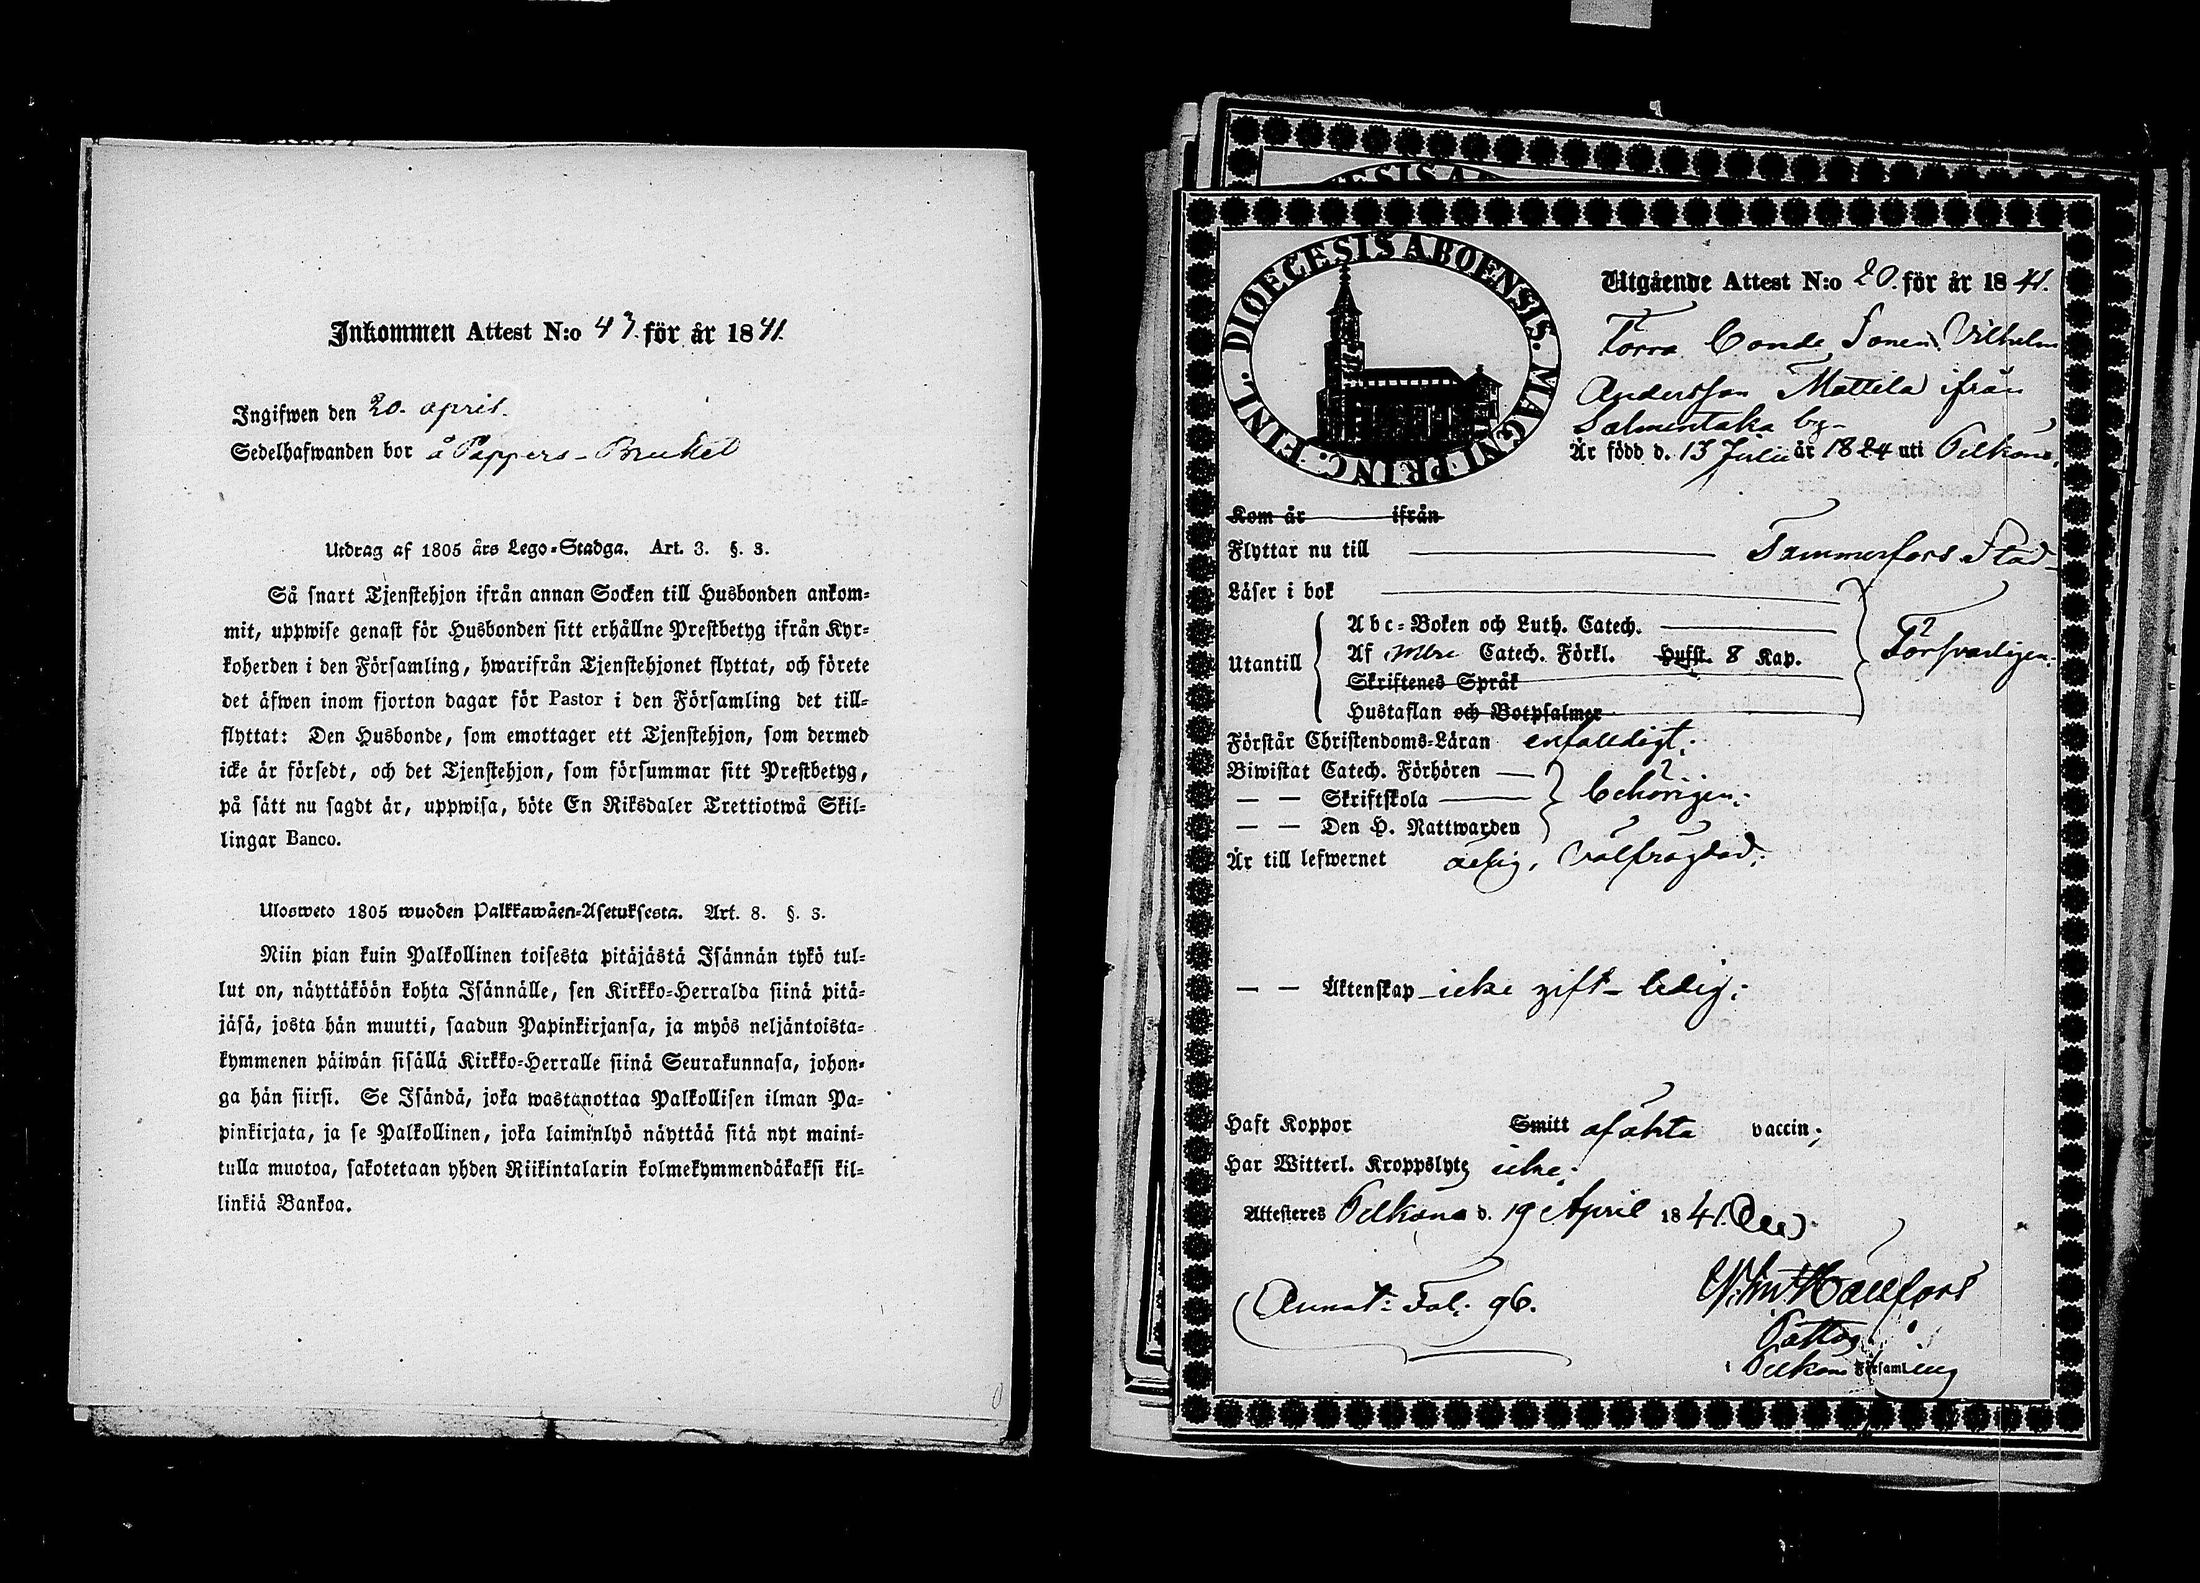 Inkommen Attest N:o 43. för år 1841.
Ingifwen den 20. april.
Sedelhafwanden bor å Pappers-Bruket
Utdrag af 1805 års Lego-Stadga. Art. 3. §. 3.
Så snart Tjenstehjon ifrån annan Socken till Husbonden ankom-
mit, uppwise genast för Husbonden sitt erhållne Prestbetyg ifrån Kyr-
koherden i den Församling, hwarifrån Tjenstehjonet flyttat, och förete
det äfwen inom fjorton dagar för Pastor i den Församling det till-
flyttat: Den Husbonde, som emottager ett Tjenstehjon, som dermed
icke är försedt, och det Tjenstehjon, som försummar sitt Prestbetyg,
på sätt nu sagdt är, uppwisa, böte En Riksdaler Trettiotwå Skil-
lingar Banco.
Ulosweto 1805 wuoden Palkkawäen-Asetuksesta. Art. 8. §. 3.
Niin pian kuin Palkollinen toisesta pitäjästä Isännän tykö tul-
lut on, näyttäköön kohta Isännälle, sen Kirkko-Herralda siinä pitä-
jäsä, josta hän muutti, saadun Papinkirjansa, ja myös neljäntoista-
kymmenen päiwän sisällä Kirkko-Herralle siinä Seurakunnasa, johon-
ga hän siirsi. Se Isändä, joka wastanottaa Palkollisen ilman Pa-
pinkirjata, ja se Palkollinen, joka laiminlyö näyttää sitä nyt maini-
tulla muotoa, sakotetaan yhden Riikintalarin kolmekymmendäkaksi kil-
linkiä Bankoa.
DIOECESIS ABOENSIS. MAGNI PRINC. FINL.
Utgående Attest N:o 20. för år 1841.
Torra Bonde Sonen Vilhelm
Andersson Mattila ifrån
Salmentaka by-
Är född d. 13 Julii år 1824 uti Pelkäne,
Kom år ifrån
Flyttar nu till Tammerfors Stad
Läser i bok
Utantill
Abc-Boken och Luth. Catech.
Af Catech. Förkl. Hufst. 8 Kap.
Skriftenes Språk
Hustaflan och Botpsalmer
Försvarligen.
Förstår Christendoms-Läran enfaldigt;
Biwistat Catech. Förhören
— — Skriftskola
— — Den H. Nattwarden
behörigen;
Är till lefwernet ärlig, välfrägdad;
— — Äktenskap icke gift- ledig;
Haft Koppor Smitt afäkta vaccin;
Har Witterl. Kroppslyte icke.
Attesteras Pelkäne d. 19 April 1841.
Annot: Fol: 96.
Hällfors
Pastor
i Pelkäne Församling